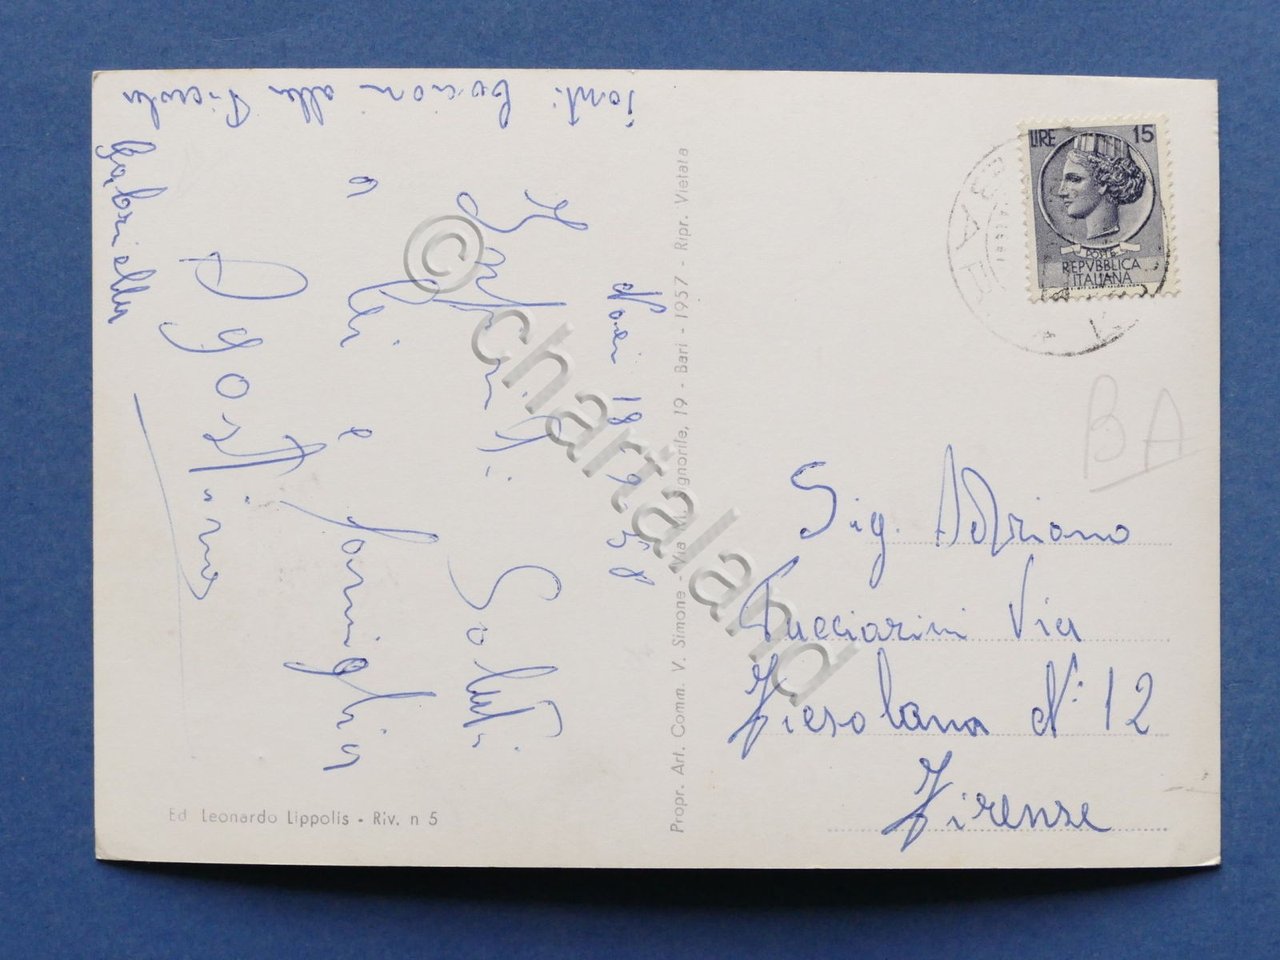 Noci 18 9 58
Infiniti Saluti
a lei e famiglia
Agostino
tanti bacioni alla Piccola
Gabriella
Ed. Leonardo Lippolis - Riv. n 5
Propr. Art. Comm. V. Simone - Via M. Signorile, 19 - Bari - 1957 - Ripr. Vietata
LIRE 15
POSTE
REPVBBLICA
ITALIANA
BA
Sig. Adriano
Tucciarini Via
Fiesolana N° 12
Firenze
© chartaland